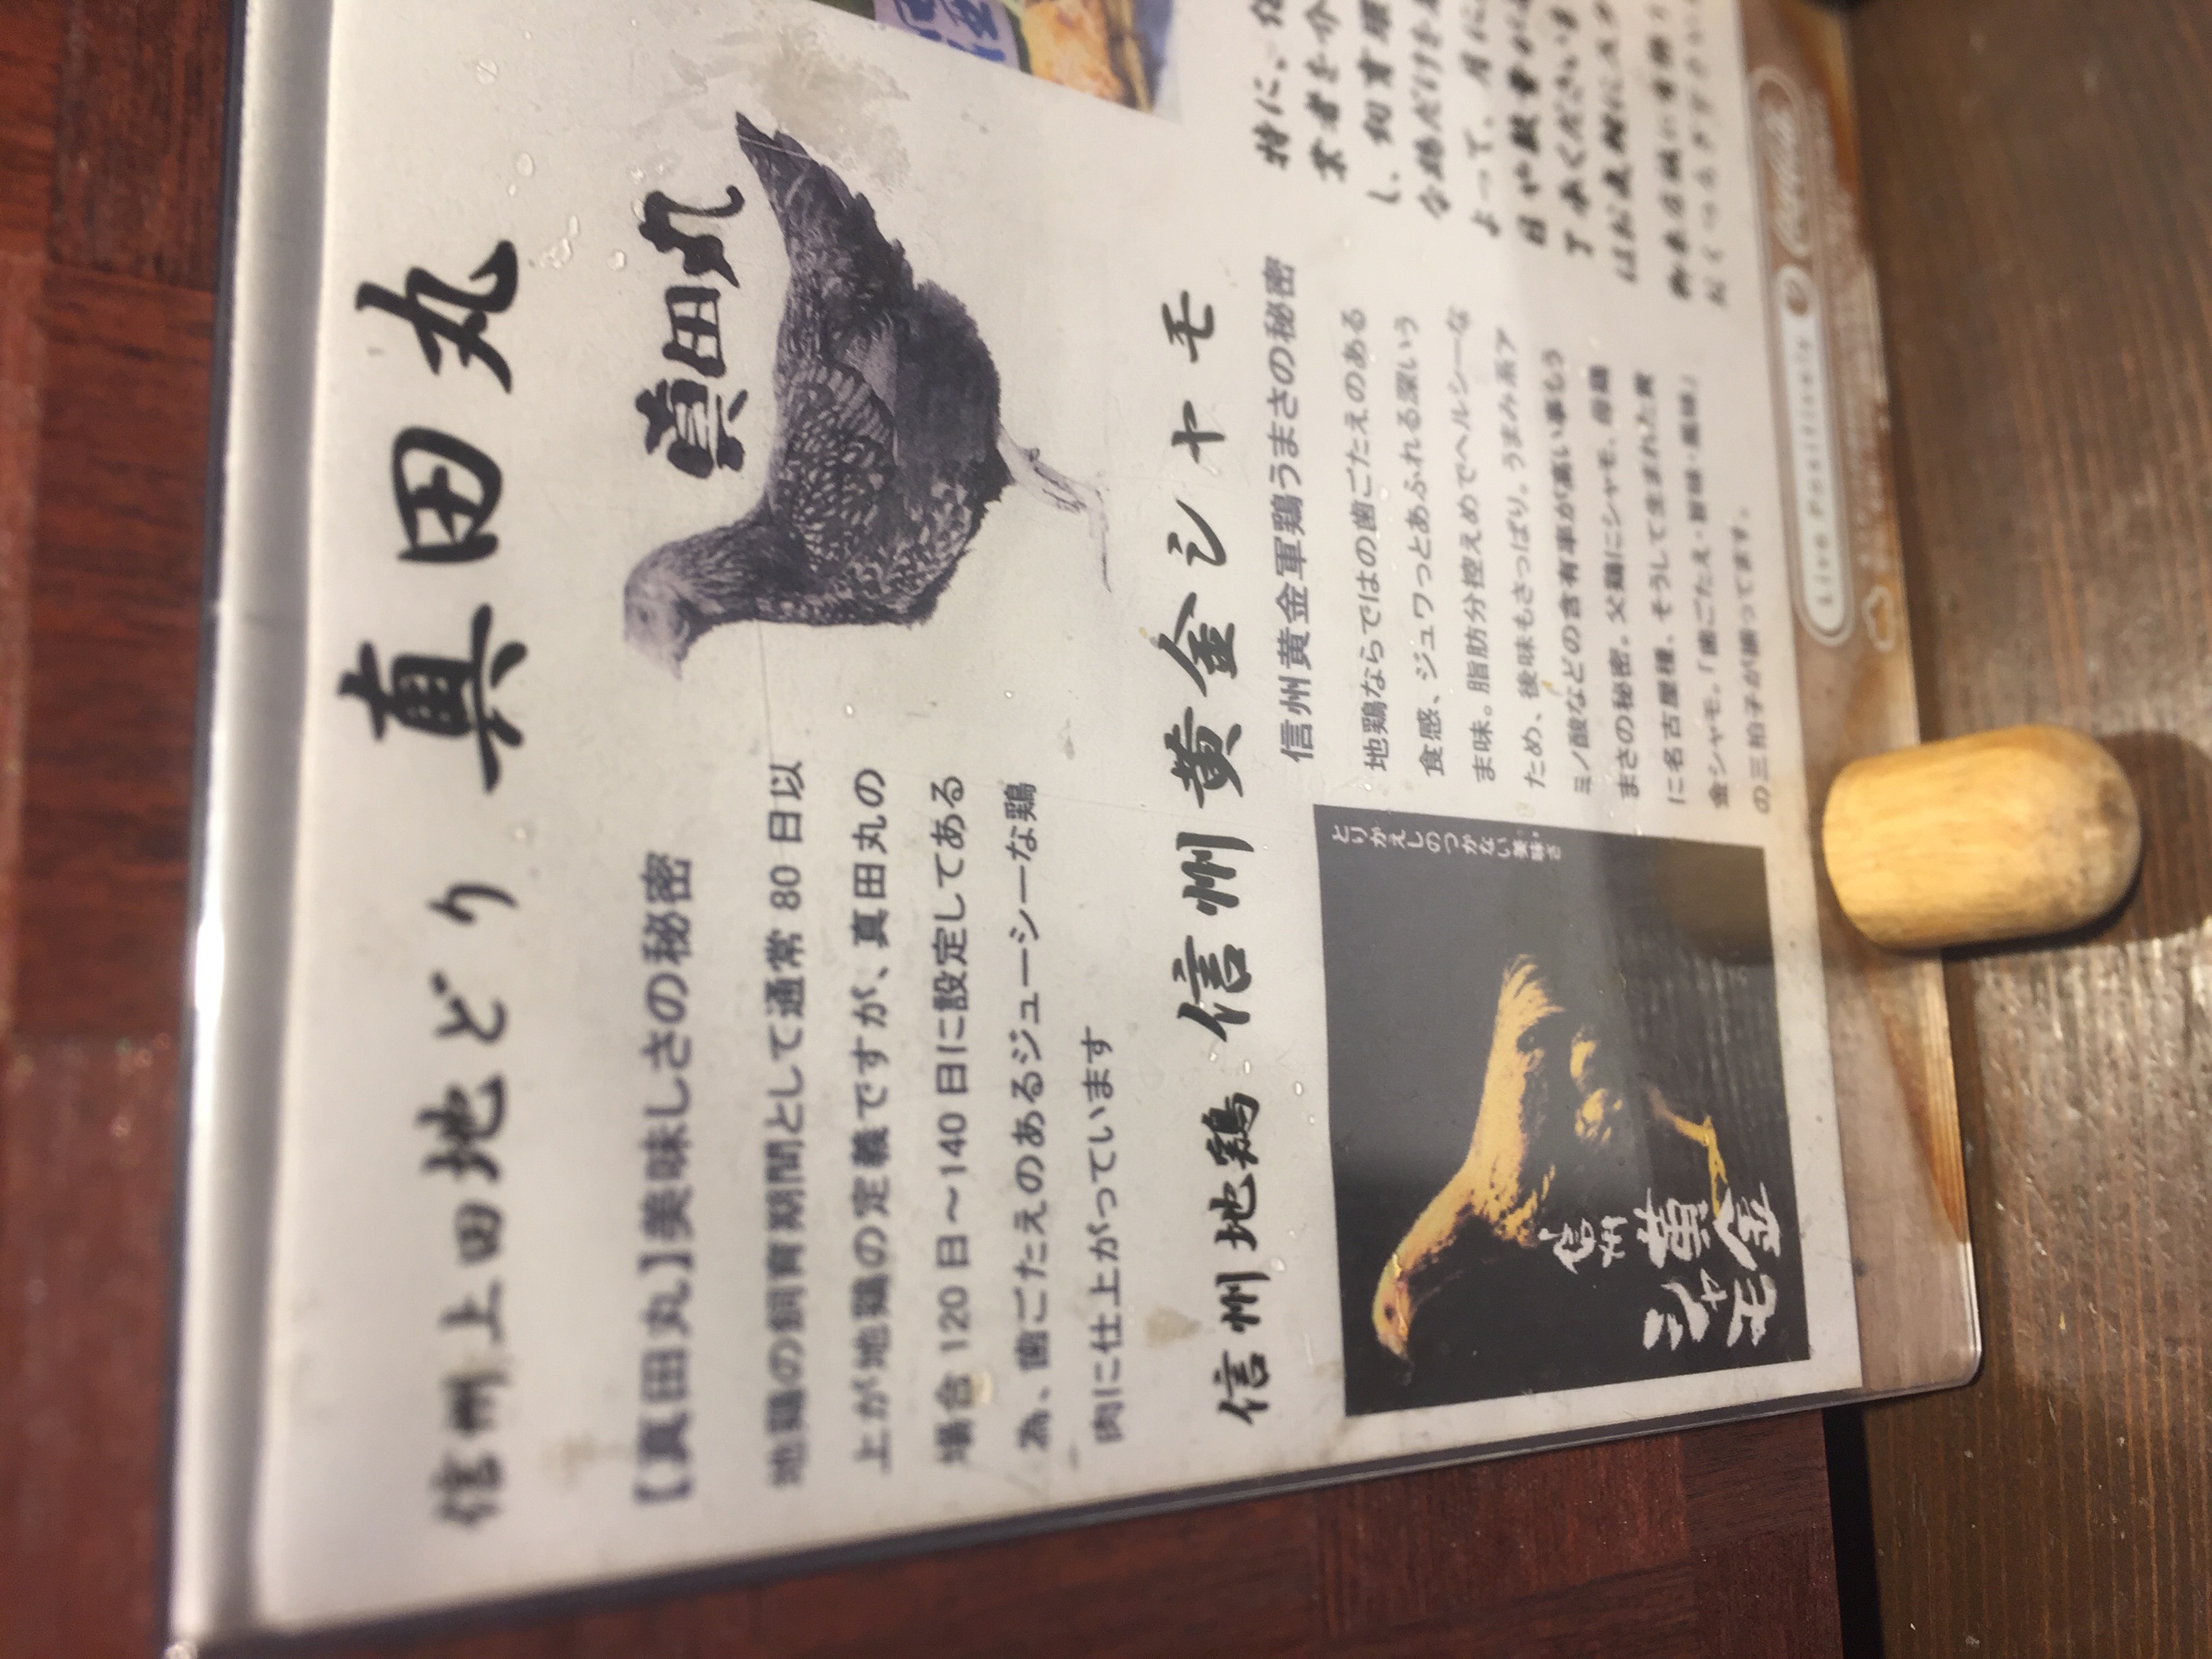 信州上田地どり 真田丸
【真田丸】美味しさの秘密
地鶏の飼育期間として通常 80 日以
上が地鶏の定義ですが、真田丸の
場合 120 日〜140 日に設定してある
為、歯ごたえのあるジューシーな鶏
肉に仕上がっています
真田丸
信州地鶏 信州黄金シャモ
とりかえしのつかない美味さ
信州
黄金
シャモ
信州黄金軍鶏うまさの秘密
地鶏ならではの歯ごたえのある
食感、ジュワっとあふれる深いう
ま味。脂肪分控えめでヘルシーな
ため、後味もさっぱり。うまみ系ア
ミノ酸などの含有率が高い事もう
まさの秘密。父鶏にシャモ、母鶏
に名古屋種、そうして生まれた黄
金シャモ。「歯ごたえ・旨味・風味」
の三拍子が揃ってます。
特に、
業者を介
し、飼育環
な鶏だけを
よって、月に
日や数量が
了承ください
Live Positively